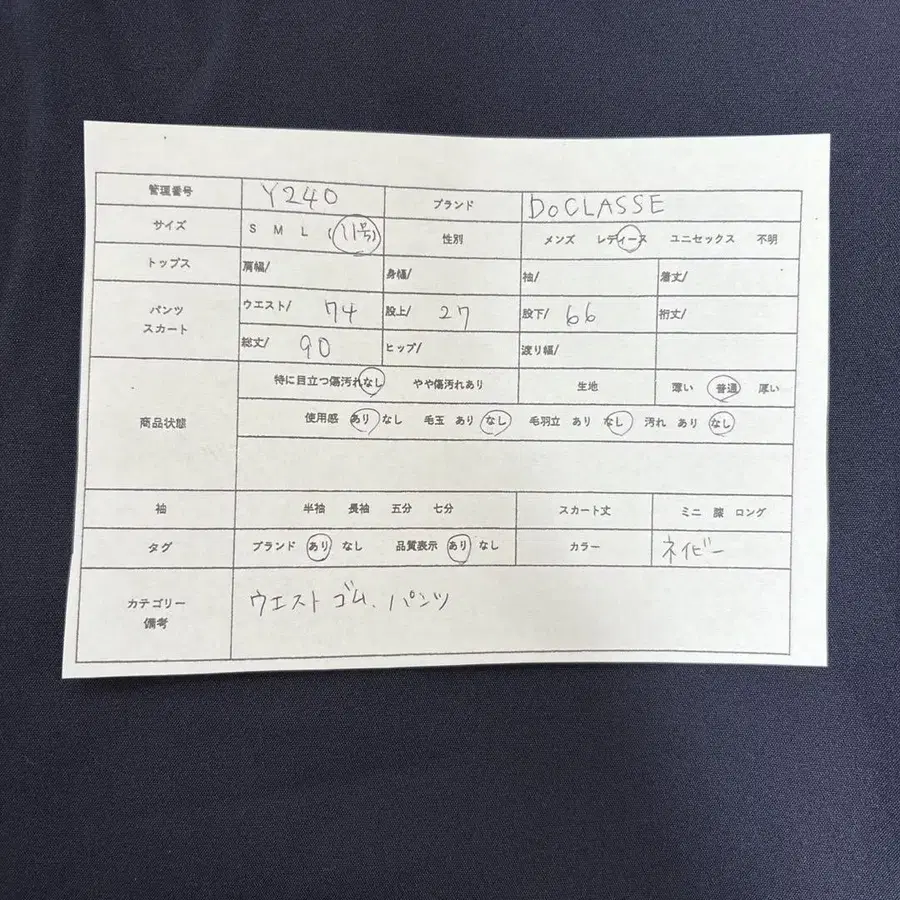 管理番号 Y240 ブランド DoCLASSE
サイズ S M L (11号) 性別 メンズ レディース ユニセックス 不明
トップス 肩幅/ 身幅/ 袖/ 着丈/
パンツ スカート ウエスト/ 74 股上/ 27 股下/ 66 裄丈/
総丈/ 90 ヒップ/ 渡り幅/
商品状態 特に目立つ傷汚れなし やや傷汚れあり 生地 薄い 普通 厚い
使用感 あり なし 毛玉 あり なし 毛羽立 あり なし 汚れ あり なし
袖 半袖 長袖 五分 七分 スカート丈 ミニ 膝 ロング
タグ ブランド あり なし 品質表示 あり なし カラー ネイビー
カテゴリー 備考 ウエストゴム、パンツ